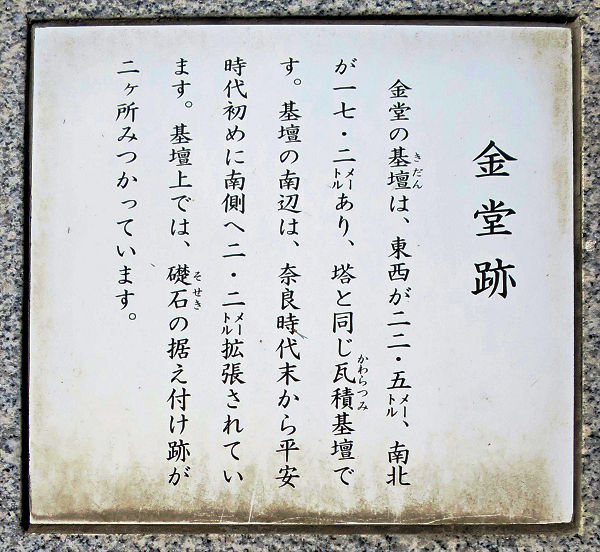 金堂跡
金堂の基壇は、東西が二二・五メートル、南北
が一七・二メートルあり、塔と同じ瓦積基壇で
す。基壇の南辺は、奈良時代末から平安
時代初めに南側へ二・二メートル拡張されてい
ます。基壇上では、礎石の据え付け跡が
二ヶ所みつかっています。
きだん
かわらつみ
そせき